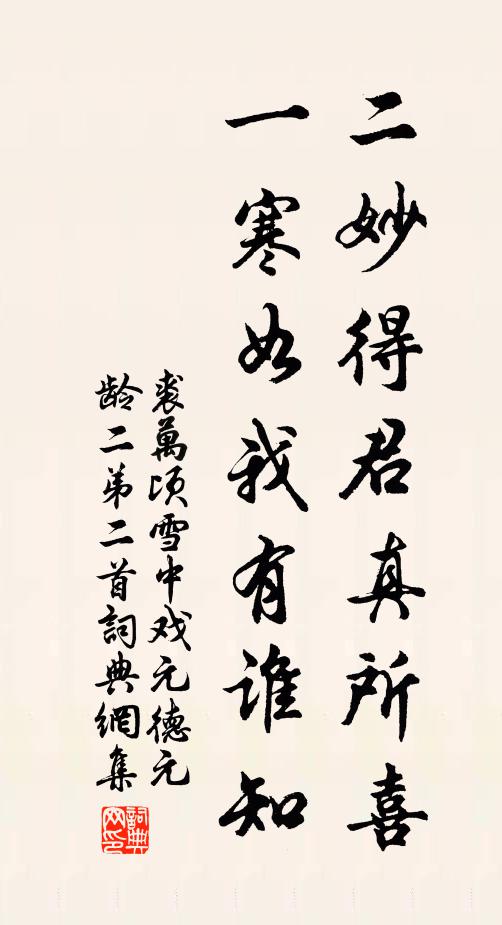 二妙得君真所喜
一寒如我有谁知
裘萬頃雪中戏元德元
龄二弟二首詞典網集
詞典网印